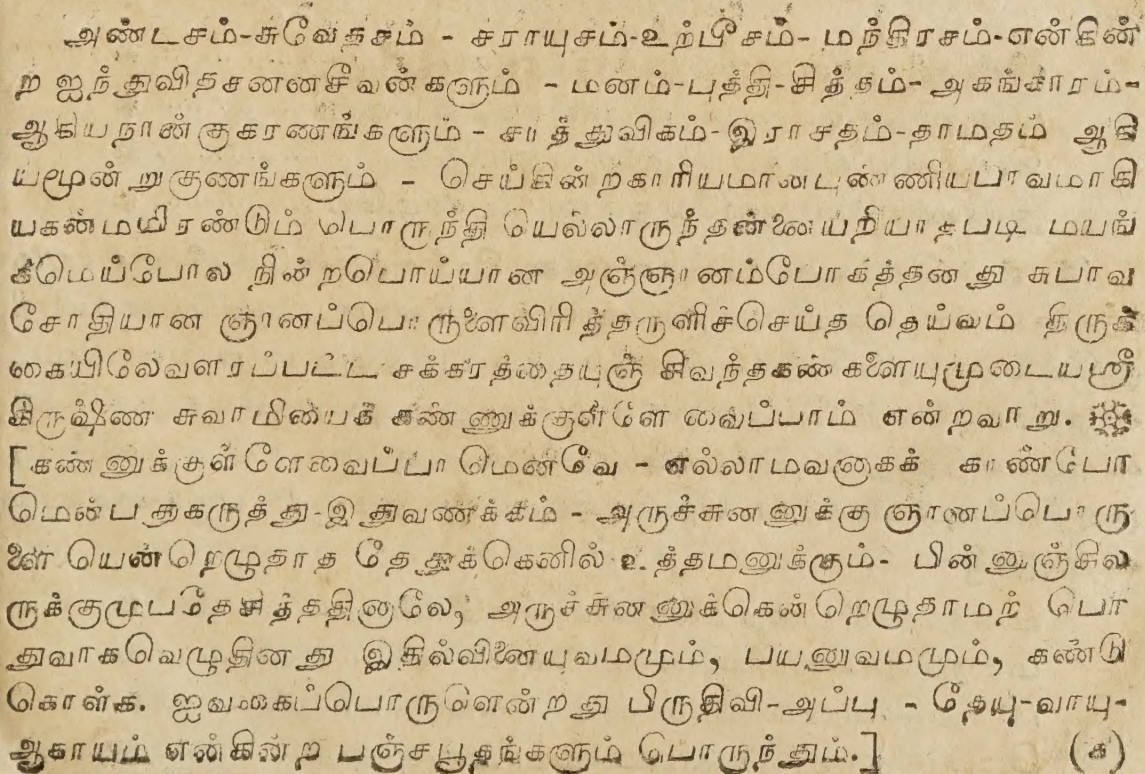 அண்டசம்-சுவேதசம் - சராயுசம்-உற்பீசம்- மந்திரசம்-என்கின்
ற ஐந்துவிதசனனசீவன்களும் - மனம்-புத்தி-சித்தம்-அகங்காரம்-
ஆகியநான்குகரணங்களும் - சாத்துவிகம்-இராசதம்-தாமதம் ஆகி
யமூன்றுகுணங்களும் - செய்கின்றகாரியமானபுண்ணியபாவமாகி
யகன்மமிரண்டும் பொருந்தி யெல்லாருந்தன்னையறியாதபடி மயங்
கிமெய்போல நின்றபொய்யான அஞ்ஞானம்போகத்தனது சுபாவ
சோதியான ஞானப்பொருளைவிரித்தருளிச்செய்த தெய்வம் திருக்
கையிலேவளரப்பட்ட சக்கரத்தையுஞ் சிவந்தகண்களையுமுடையஸ்ரீ
கிருஷ்ண சுவாமியைக் கண்ணுக்குள்ளே வைப்பாம் என்றவாறு.
[கண்ணுக்குள்ளேவைப்பாமெனவே - எல்லாமவனாகக் காண்போ
மென்பதுகருத்து-இதுவணக்கம் - அருச்சுனனுக்கு ஞானப்பொரு
ளை யென்றெழுதாத தேதுக்கெனில் உத்தமனுக்கும்- பின்னுஞ்சில
ருக்குமுபதேசித்ததினாலே, அருச்சுனனுக்கென்றெழுதாமற் பொ
துவாகவெழுதினது இதில்வினையுவமமும், பயனுவமமும், கண்டு
கொள்க. ஐவகைப்பொருளென்றது பிருதிவி-அப்பு - தேயு-வாயு-
ஆகாயம் என்கின்ற பஞ்சபூதங்களும் பொருந்தும்.] (க)